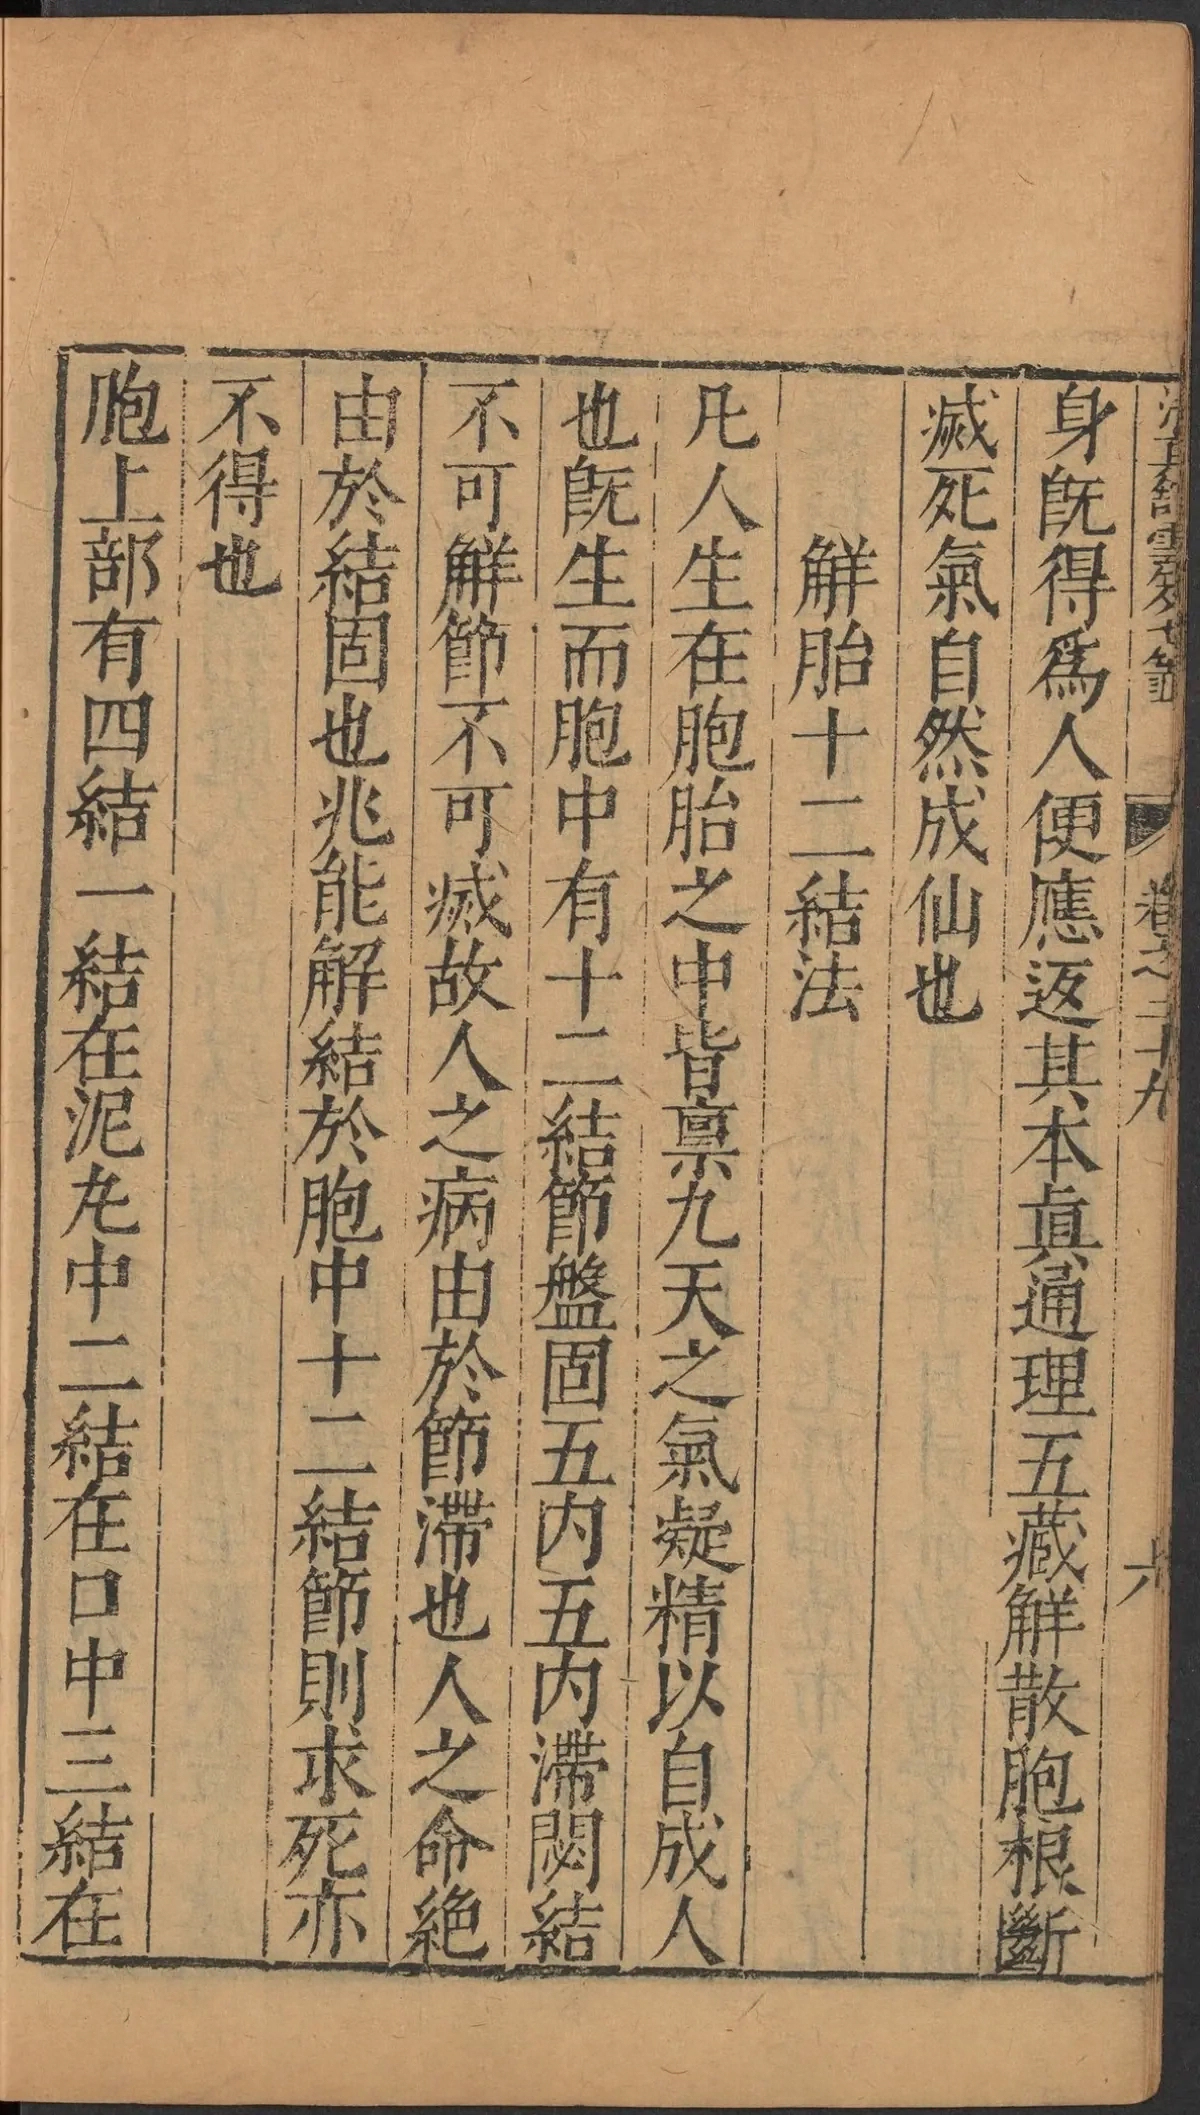 清眞館雲笈七籖 卷之二十九 六
身旣得爲人便應返其本眞通理五藏觧散胞根斷
滅死氣自然成仙也
觧胎十二結法
凡人生在胞胎之中皆禀九天之氣凝精以自成人
也旣生而胞中有十二結節盤固五内五内滯閡結
不可觧節不可滅故人之病由於節滯也人之命絶
由於結固也兆能解結於胞中十二結節則求死亦
不得也
胞上部有四結一結在泥丸中二結在口中三結在